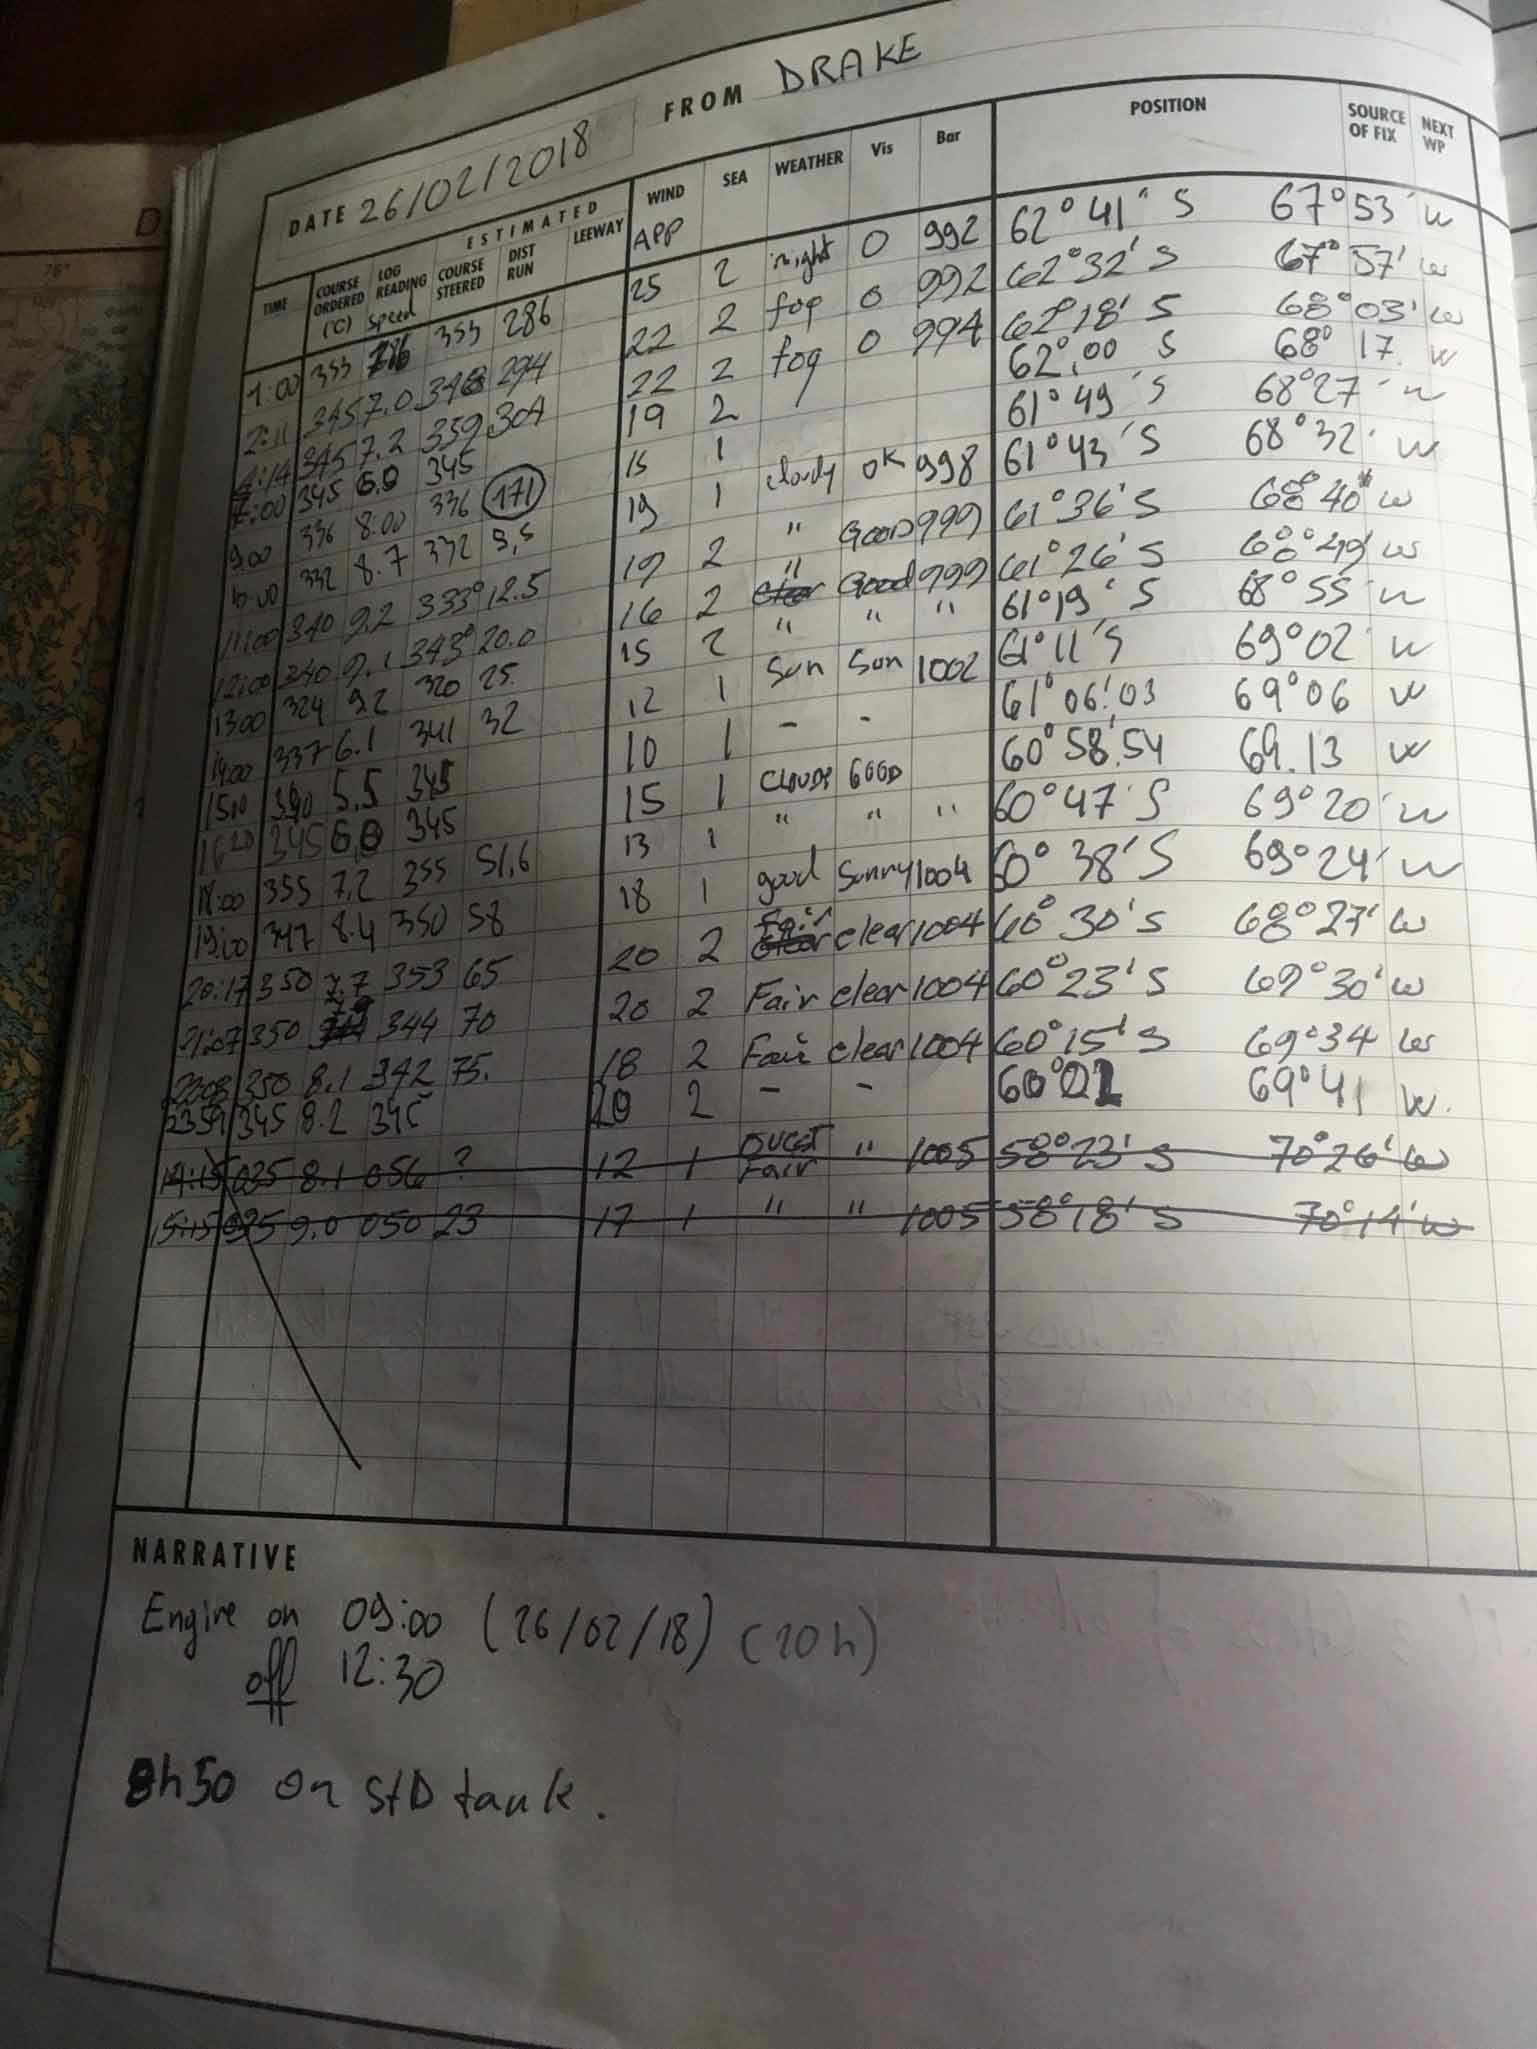 DATE 26/02/2018 FROM DRAKE
ESTIMATED
TIME COURSE ORDERED (°C) LOG READING speed COURSE STEERED DIST RUN LEEWAY WIND APP SEA WEATHER Vis Bar POSITION SOURCE OF FIX NEXT WP
1:00 353 353 286 25 2 night 0 992 62° 41' S 67° 53' W
2:11 345 7.0 346 294 22 2 fog 0 992 62° 32' S 67° 57' W
4:14 345 7.2 339 304 22 2 fog 0 994 62° 18' S 68° 03' W
7:00 345 6.0 345 19 2 62°,00 S 68° 17. W
9:00 336 8.00 336 171 15 1 61° 49' S 68° 27' W
10:00 332 8.7 332 5,5 19 1 cloudy OK 998 61° 43' S 68° 32' W
11:00 340 9.2 333° 12.5 19 2 " GOOD 999 61° 36' S 68° 40' W
12:00 340 9.1 343° 20.0 16 2 " Good 999 61° 26' S 68° 49' W
1300 324 9.2 320 25. 15 2 " " " 61° 19' S 68° 55' W
14:00 337 6.1 341 32 12 1 Sun Sun 1002 61° 11' S 69° 02' W
1500 5.5 345 10 1 - - 61° 06!03 69° 06 W
1620 345 6,0 345 15 1 CLOUDY GOOD 60° 58'.54 69.13 W
18:00 355 7,2 355 51,6 13 1 " " " 60° 47' S 69° 20' W
19:00 347 8.4 350 58 18 1 good Sunny 1004 60° 38' S 69° 24' W
20:17 350 7.7 353 65 20 2 Fair clear 1004 60° 30' S 68° 27' W
21:07 350 344 70 20 2 Fair clear 1004 60° 23' S 69° 30' W
2208 350 8.1 342 75. 18 2 Fair clear 1004 60° 15' S 69° 34 W
2359 345 8.2 345 20 2 - - 60° 02 69° 41 W.
14:15 035 8.1 056 ? 12 1 OVCST Fair " 1005 58° 23' S 70° 26' W
15:15 035 9.0 050 23 17 1 " " 1005 58° 18' S 70° 14' W
NARRATIVE
Engine on 09:00 (26/02/18) (20h)
off 12:30
8h50 on StD tank.